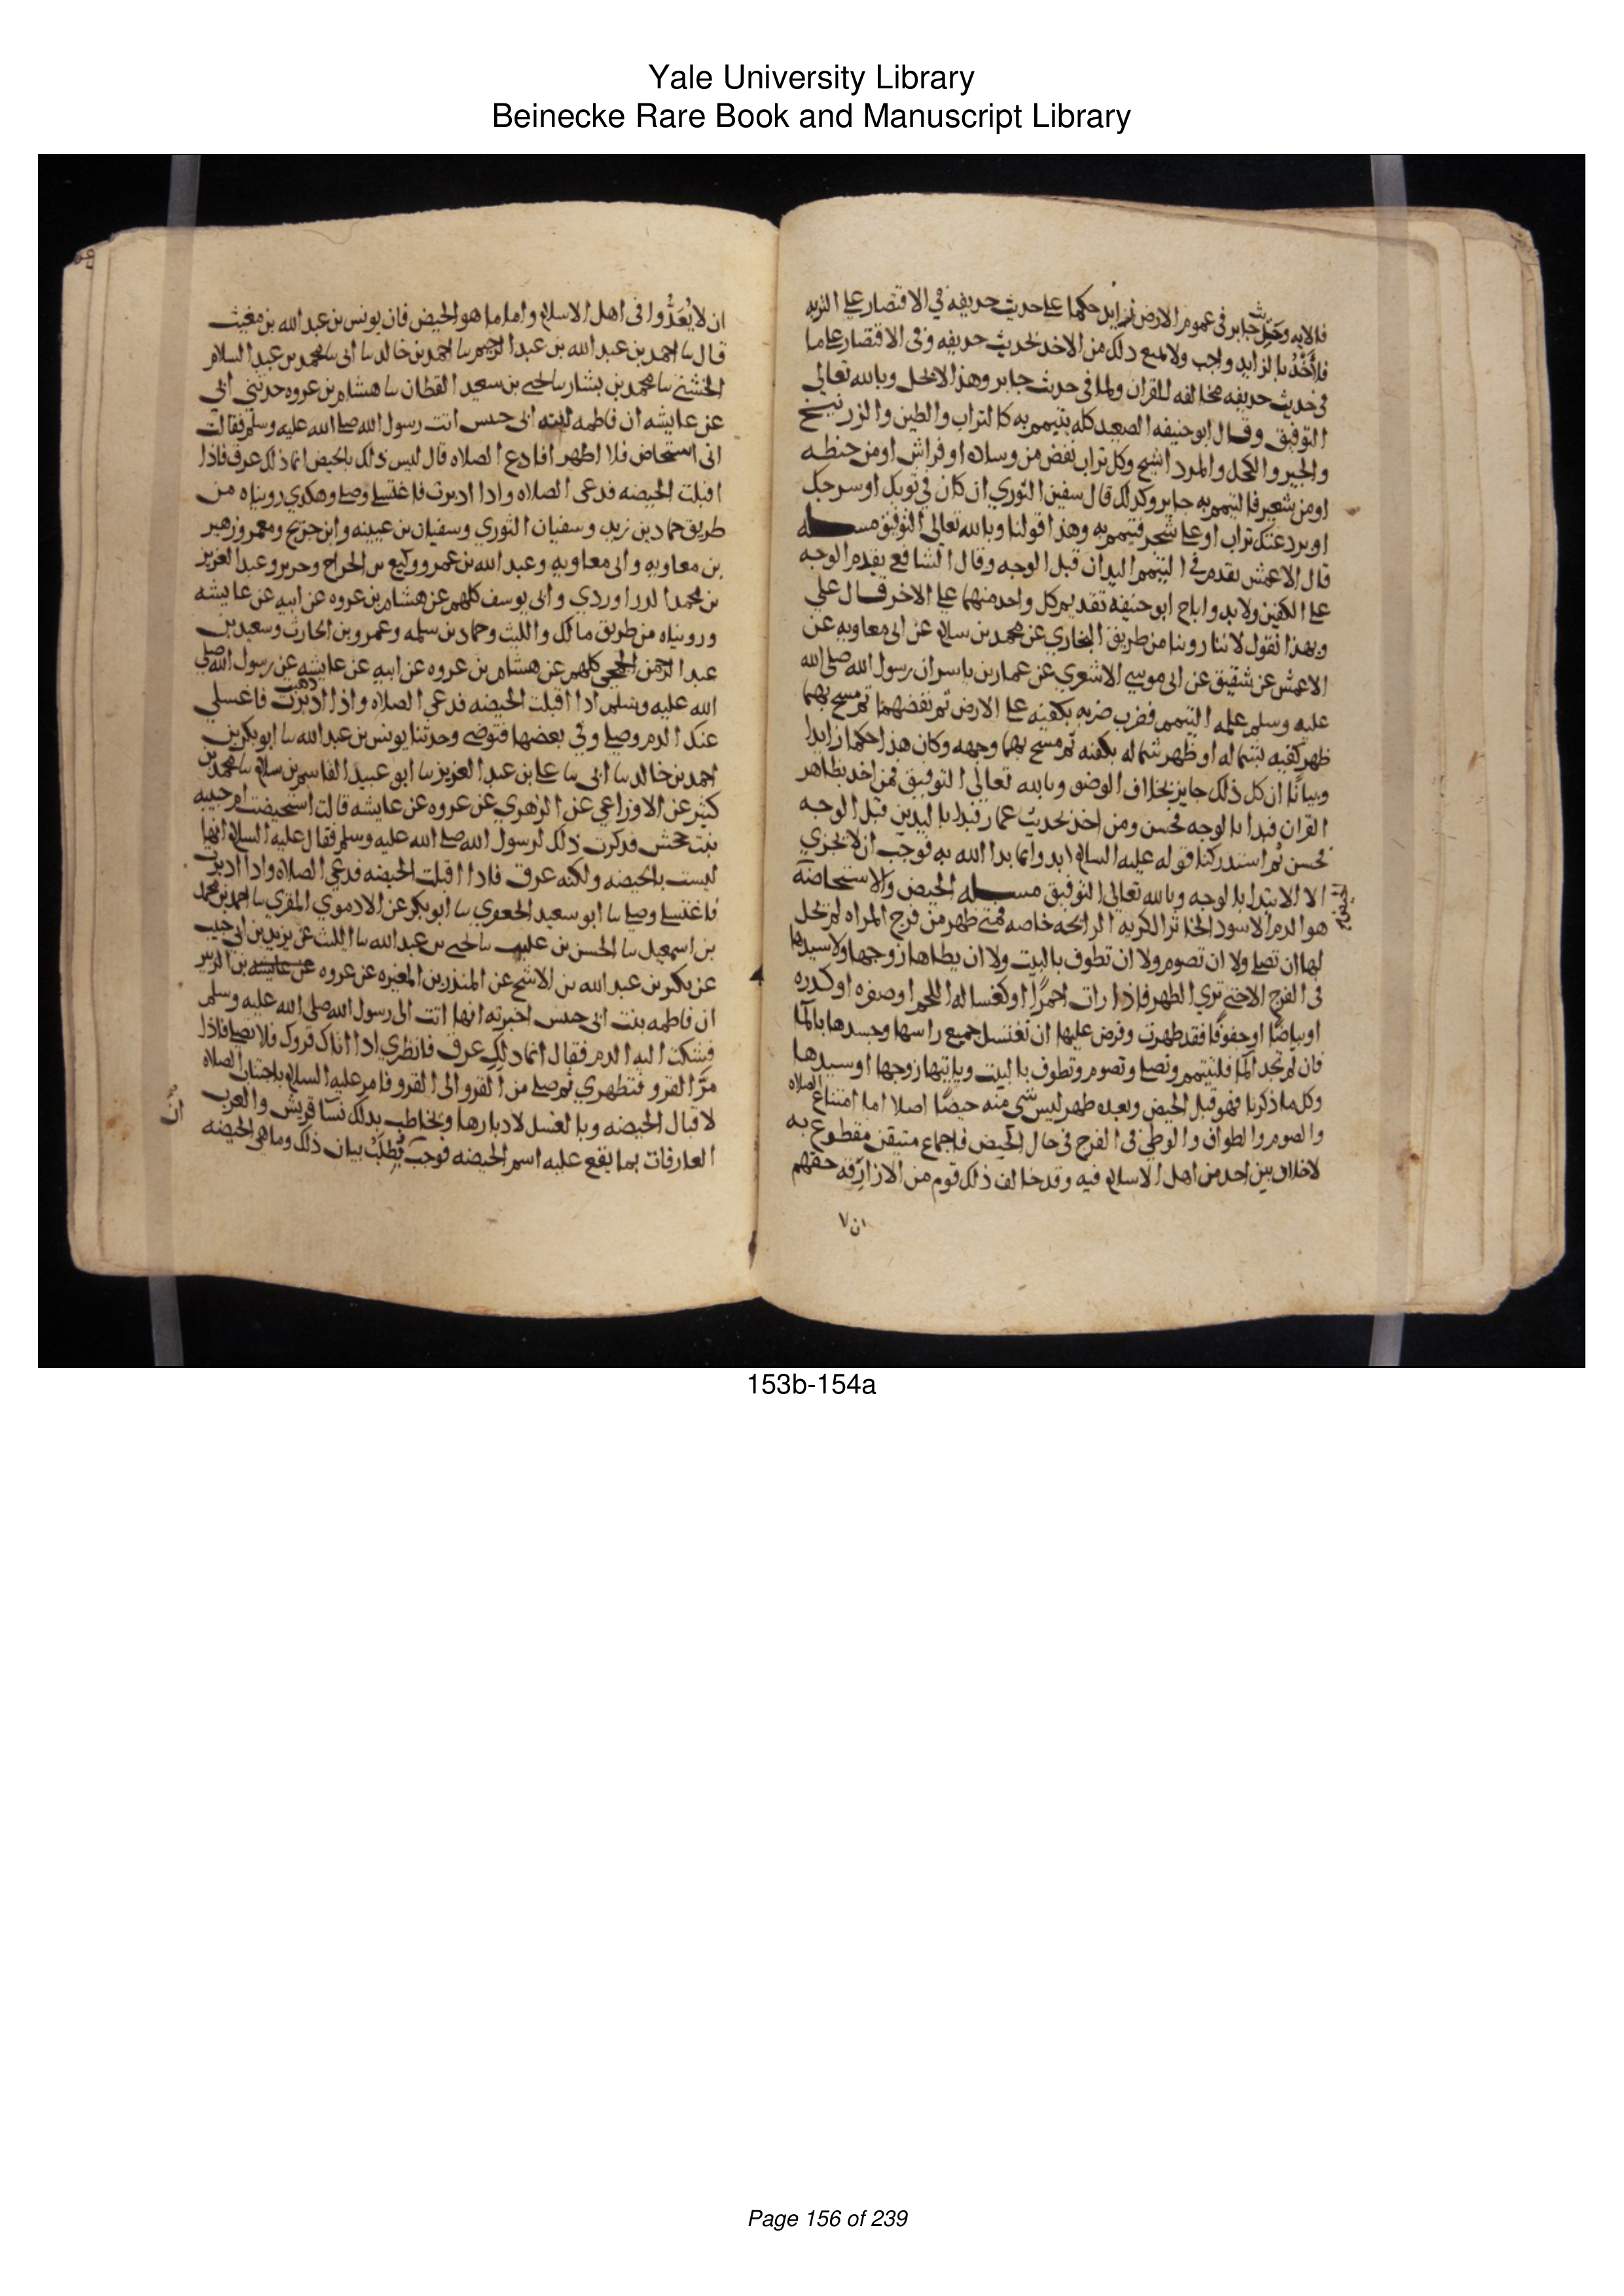 Yale University Library
Beinecke Rare Book and Manuscript Library
فالايه وحديث جابر في عموم الارض زايد حكما على حديث حذيفه في الاقتصار على التربه
فالاخذ بالزايد واجب ولا يمنع ذلك من الاخذ بحديث حذيفه وفي الاقتصار على ما
في حديث حذيفه مخالفه للقران ولما في حديث جابر وهذا لا يحل وبالله تعالى
التوفيق وقال ابو حنيفه الصعيد كله يتيمم به كالتراب والطين والزرنيخ
والجير والكحل والمرداسنج وكل تراب نفض من وساده او فراش او من حنطه
او من شعير فالتيمم به جايز وكذلك قال سفين الثوري ان كان في ثوبك او سرجك
او بردعتك تراب او على شجر فتيمم به وهذا قولنا وبالله تعالى التوفيق مسله
قال الاعمش يقدم في التيمم اليدان قبل الوجه وقال الشافعي يقدم الوجه
على الكفين ولا بد واباح ابو حنيفه تقديم كل واحد منهما على الاخر قال علي
وبهذا نقول لاننا روينا من طريق البخاري عن محمد بن سلام عن ابي معاويه عن
الاعمش عن شقيق عن ابي موسى الاشعري عن عمار بن ياسر ان رسول الله صلى الله
عليه وسلم علمه التيمم فضرب ضربه بكفيه على الارض ثم نفضهما ثم مسح بهما
ظهر كفيه بشماله او ظهر شماله بكفه ثم مسح بهما وجهه وكان هذا حكما زايدا
وبيانا ان كل ذلك جايز بخلاف الوضو وبالله تعالى التوفيق فمن اخذ بظاهر
القران فبدا بالوجه فحسن ومن اخذ بحديث عمار فبدا باليدين قبل الوجه
فحسن ثم استدركنا قوله عليه السلام ابدوا بما بدا الله به فوجب ان لا يجزي
الا الابتدا بالوجه وبالله تعالى التوفيق مسله الحيض والاستحاضه
الحيض
هو الدم الاسود الخاثر الكريه الرائحه خاصه فمتى ظهر من فرج المراه لم يحل
لها ان تصلي ولا ان تصوم ولا ان تطوف بالبيت ولا ان يطاها زوجها ولا سيدها
في الفرج الا حتى ترى الطهر فاذا رات احمرا او كغساله اللحم او صفره او كدره
او بياضا او جفوفا فقد طهرت وفرض عليها ان تغتسل جميع راسها وجسدها بالما
فان لم تجد الما فلتتيمم وتصلي وتصوم وتطوف بالبيت وياتيها زوجها او سيدها
وكل ما ذكرنا فهو قبل الحيض وبعده طهر ليس شي منه حيضا اصلا اما امتناع الصلاه
والصوم والطواف والوطي في الفرج في حال الحيض فاجماع متيقن مقطوع به
لا خلاف بين احد من اهل الاسلام فيه وقد خالف ذلك قوم من الازارقه حقهم
ان لا
ان لا يعدوا في اهل الاسلام واما ما هو الحيض فان يونس بن عبد الله بن مغيث
قال نا احمد بن عبد الله بن عبد الرحيم نا احمد بن خالد نا ابي نا محمد بن عبد السلام
الخشني نا محمد بن بشار نا يحيى بن سعيد القطان نا هشام بن عروه حدثني ابي
عن عايشه ان فاطمه ابنه ابي حبيش اتت رسول الله صلى الله عليه وسلم فقالت
اني استحاض فلا اطهر افادع الصلاه قال ليس ذلك بالحيض انما ذلك عرق فاذا
اقبلت الحيضه فدعي الصلاه واذا ادبرت فاغتسلي وصلي وهكذي رويناه من
طريق حماد بن زيد وسفيان الثوري وسفيان بن عيينه وابن جريج ومعمر وزهير
بن معاويه وابي معاويه وعبد الله بن عمرو ووكيع بن الجراح وجرير وعبد العزيز
بن محمد الدراوردي وابي يوسف كلهم عن هشام بن عروه عن ابيه عن عايشه
ورويناه من طريق مالك والليث وحماد بن سلمه وعمرو بن الحارث وسعيد بن
عبد الرحمن الجمحي كلهم عن هشام بن عروه عن ابيه عن عايشه عن رسول الله صلى
الله عليه وسلم اذا اقبلت الحيضه فدعي الصلاه واذا ادبرت ذهبت فاغسلي
عنك الدم وصلي وفي بعضها فتوضي وحدثنا يونس بن عبد الله نا ابو بكر بن
احمد بن خالد نا ابي نا علي بن عبد العزيز نا ابو عبيد القاسم بن سلام نا محمد بن
كثير عن الاوزاعي عن الزهري عن عروه عن عايشه قالت استحيضت ام حبيبه
بنت جحش فذكرت ذلك لرسول الله صلى الله عليه وسلم فقال عليه السلام انها
ليست بالحيضه ولكنه عرق فاذا اقبلت الحيضه فدعي الصلاه واذا ادبرت
فاغتسلي وصلي نا ابو سعيد الجعفري نا ابو بكر عن الادفوي المقري نا احمد بن محمد
بن اسمعيل نا الحسن بن عليب نا يحيى بن عبد الله نا الليث عن يزيد بن ابي حبيب
عن بكر بن عبد الله بن الاشج عن المنذر بن المغيره عن عروه عن عايشه بن الزبير
ان فاطمه بنت ابي حبيش اخبرته انها اتت الى رسول الله صلى الله عليه وسلم
فشكت اليه الدم فقال انما ذلك عرق فانظري اذا اتاك قروك فلا تصلي فاذا
مر القرو فتطهري ثم صلي من القرو الى القرو فامر عليه السلام باجتناب الصلاه
لاقبال الحيضه وبالغسل لادبارها وتخاطب بذلك نسا قريش والعرب
العارفات بما يقع عليه اسم الحيضه فوجب فطلب بيان ذلك وما هي الحيضه
ان
153b-154a
Page 156 of 239